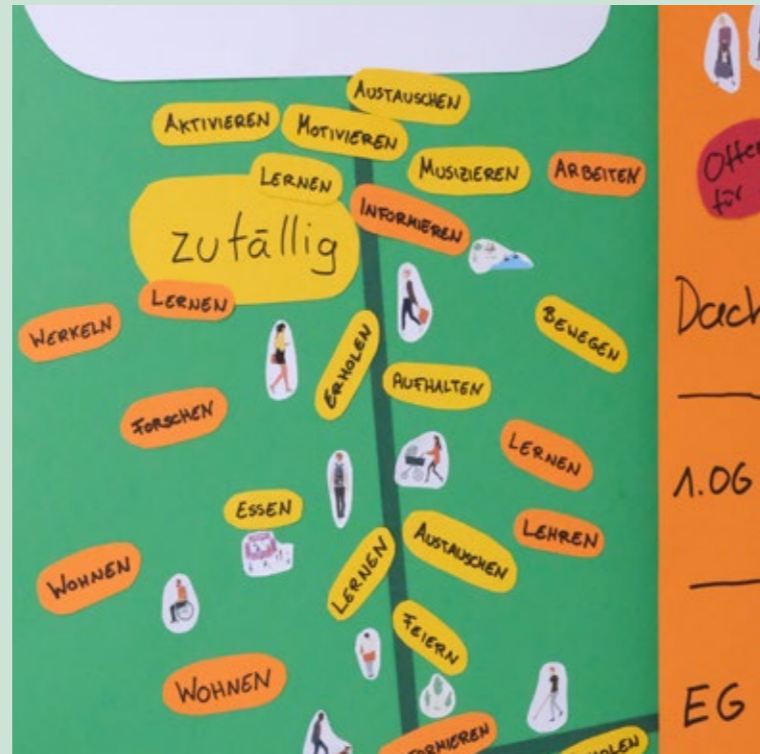 AUSTAUSCHEN
AKTIVIEREN
MOTIVIEREN
MUSIZIEREN
ARBEITEN
LERNEN
INFORMIEREN
zufällig
LERNEN
WERKELN
ERHOLEN
BEWEGEN
AUFHALTEN
FORSCHEN
LERNEN
ESSEN
LEHREN
AUSTAUSCHEN
LERNEN
WOHNEN
FEIERN
WOHNEN
für
Dach
1.OG
EG